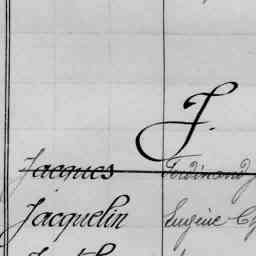 J.
Jacques Ferdinand
Jacquelin Eugène